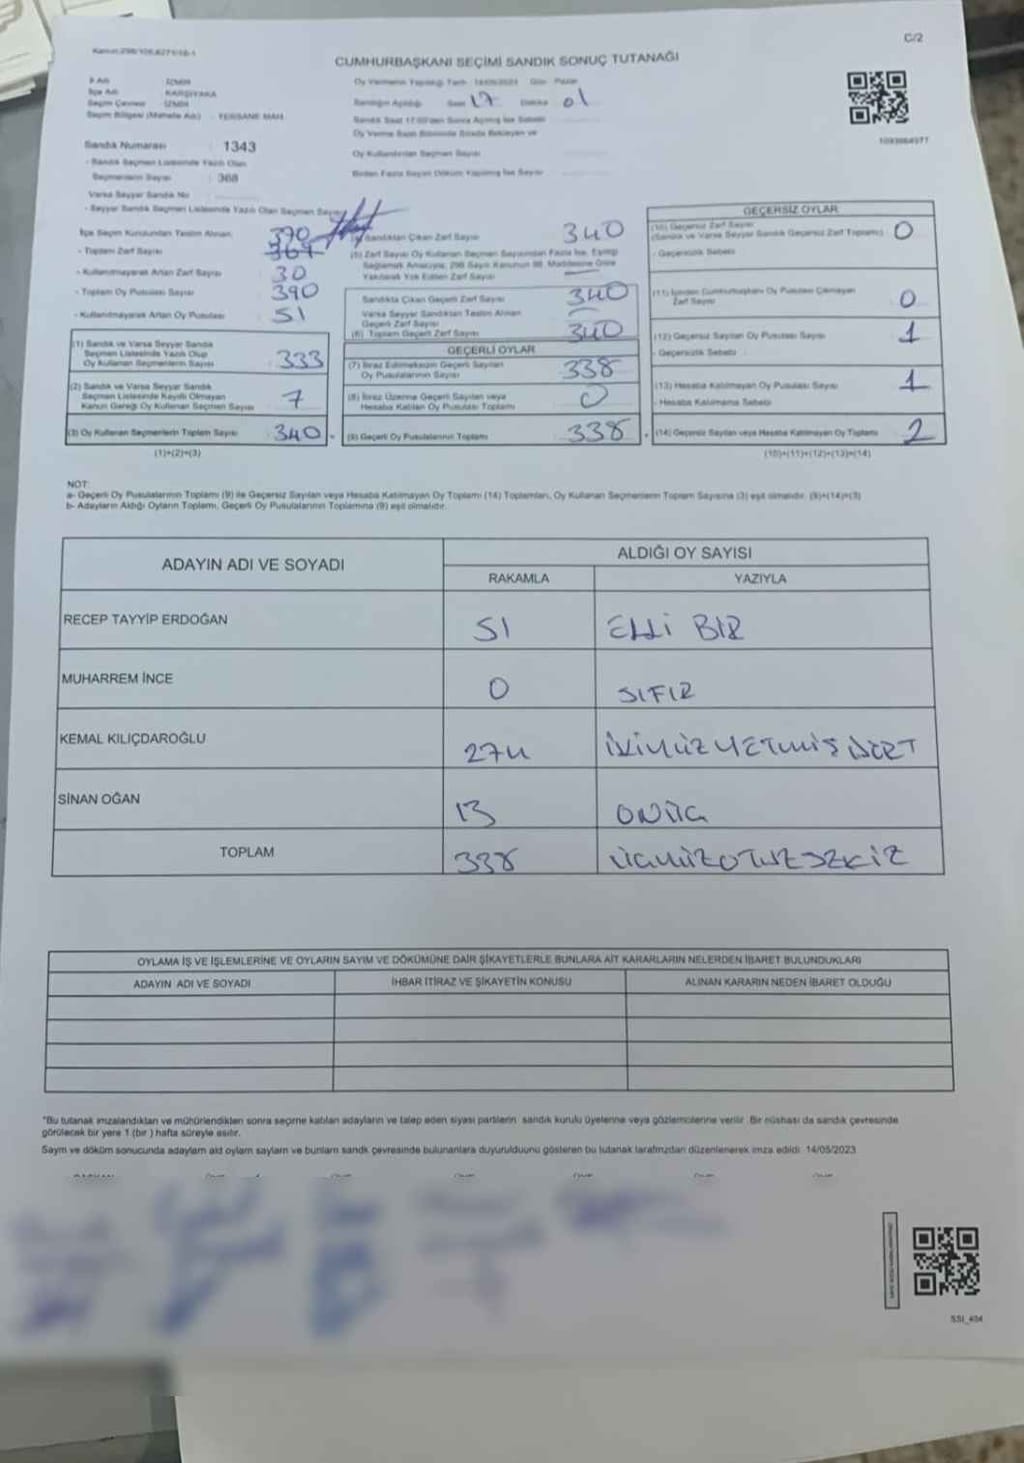 Kanun:298/106,6271/18-1
C/2
CUMHURBAŞKANI SEÇİMİ SANDIK SONUÇ TUTANAĞI
İli Adı İZMİR
İlçe Adı KARŞIYAKA
Seçim Çevresi İZMİR
Seçim Bölgesi (Mahalle Adı) : TERSANE MAH.
Sandık Numarası : 1343
- Sandık Seçmen Listesinde Yazılı Olan
Seçmenlerin Sayısı : 368
Varsa Seyyar Sandık No
- Seyyar Sandık Seçmen Listesinde Yazılı Olan Seçmen Sayısı
Oy Vermenin Yapıldığı Tarih : 14/05/2023 Gün : Pazar
Sandığın Açıldığı Saat 17 Dakika 01
Sandık Saat 17:00'den Sonra Açılmış İse Sebebi
Oy Verme Saati Bitiminde Sırada Bekleyen ve
Oy Kullandırılan Seçmen Sayısı
Birden Fazla Sayım Döküm Yapılmış İse Sayısı
İlçe Seçim Kurulundan Teslim Alınan
- Toplam Zarf Sayısı 370
- Kullanılmayarak Artan Zarf Sayısı 30
- Toplam Oy Pusulası Sayısı 390
- Kullanılmayarak Artan Oy Pusulası 51
(1) Sandık ve Varsa Seyyar Sandık
Seçmen Listesinde Yazılı Olup
Oy Kullanan Seçmenlerin Sayısı 333
(2) Sandık ve Varsa Seyyar Sandık
Seçmen Listesinde Kayıtlı Olmayan
Kanun Gereği Oy Kullanan Seçmen Sayısı 7
(3) Oy Kullanan Seçmenlerin Toplam Sayısı 340
(1)+(2)=(3)
(4) Sandıktan Çıkan Zarf Sayısı 340
(5) Zarf Sayısı Oy Kullanan Seçmen Sayısından Fazla İse, Eşitliği
Sağlamak Amacıyla, 298 Sayılı Kanunun 98. Maddesine Göre
Yakılarak Yok Edilen Zarf Sayısı
Sandıkta Çıkan Geçerli Zarf Sayısı 340
Varsa Seyyar Sandıktan Teslim Alınan
Geçerli Zarf Sayısı
(6) Toplam Geçerli Zarf Sayısı 340
GEÇERLİ OYLAR
(7) İtiraz Edilmeksizin Geçerli Sayılan
Oy Pusulalarının Sayısı 338
(8) İtiraz Üzerine Geçerli Sayılan veya
Hesaba Katılan Oy Pusulası Toplamı 0
(9) Geçerli Oy Pusulalarının Toplamı 338
GEÇERSİZ OYLAR
(10) Geçersiz Zarf Sayısı
(Sandık ve Varsa Seyyar Sandık Geçersiz Zarf Toplamı) 0
- Geçersizlik Sebebi
(11) İçinden Cumhurbaşkanı Oy Pusulası Çıkmayan
Zarf Sayısı 0
(12) Geçersiz Sayılan Oy Pusulası Sayısı 1
- Geçersizlik Sebebi
(13) Hesaba Katılmayan Oy Pusulası Sayısı 1
- Hesaba Katılmama Sebebi
(14) Geçersiz Sayılan veya Hesaba Katılmayan Oy Toplamı 2
(10)+(11)+(12)+(13)=(14)
NOT:
a- Geçerli Oy Pusulalarının Toplamı (9) ile Geçersiz Sayılan veya Hesaba Katılmayan Oy Toplamı (14) Toplamları, Oy Kullanan Seçmenlerin Toplam Sayısına (3) eşit olmalıdır. (9)+(14)=(3)
b- Adayların Aldığı Oyların Toplamı, Geçerli Oy Pusulalarının Toplamına (9) eşit olmalıdır.
ADAYIN ADI VE SOYADI
ALDIĞI OY SAYISI
RAKAMLA YAZIYLA
RECEP TAYYİP ERDOĞAN 51 ELLİ BİR
MUHARREM İNCE 0 SIFIR
KEMAL KILIÇDAROĞLU 274 İKİYÜZYETMİŞ DÖRT
SİNAN OĞAN 13 ONÜÇ
TOPLAM 338 ÜÇYÜZOTUZSEKİZ
OYLAMA İŞ VE İŞLEMLERİNE VE OYLARIN SAYIM VE DÖKÜMÜNE DAİR ŞİKAYETLERLE BUNLARA AİT KARARLARIN NELERDEN İBARET BULUNDUKLARI
ADAYIN ADI VE SOYADI İHBAR İTİRAZ VE ŞİKAYETİN KONUSU ALINAN KARARIN NEDEN İBARET OLDUĞU
"Bu tutanak imzalandıktan ve mühürlendikten sonra seçime katılan adayların ve talep eden siyasi partilerin sandık kurulu üyelerine veya gözlemcilerine verilir. Bir nüshası da sandık çevresinde
görülecek bir yere 1 (bir ) hafta süreyle asılır.
Sayım ve döküm sonucunda adayların ald oyların sayıları ve bunların sandk çevresinde bulunanlara duyurulduunu gösteren bu tutanak tarafmzdan düzenlenerek imza edildi. 14/05/2023